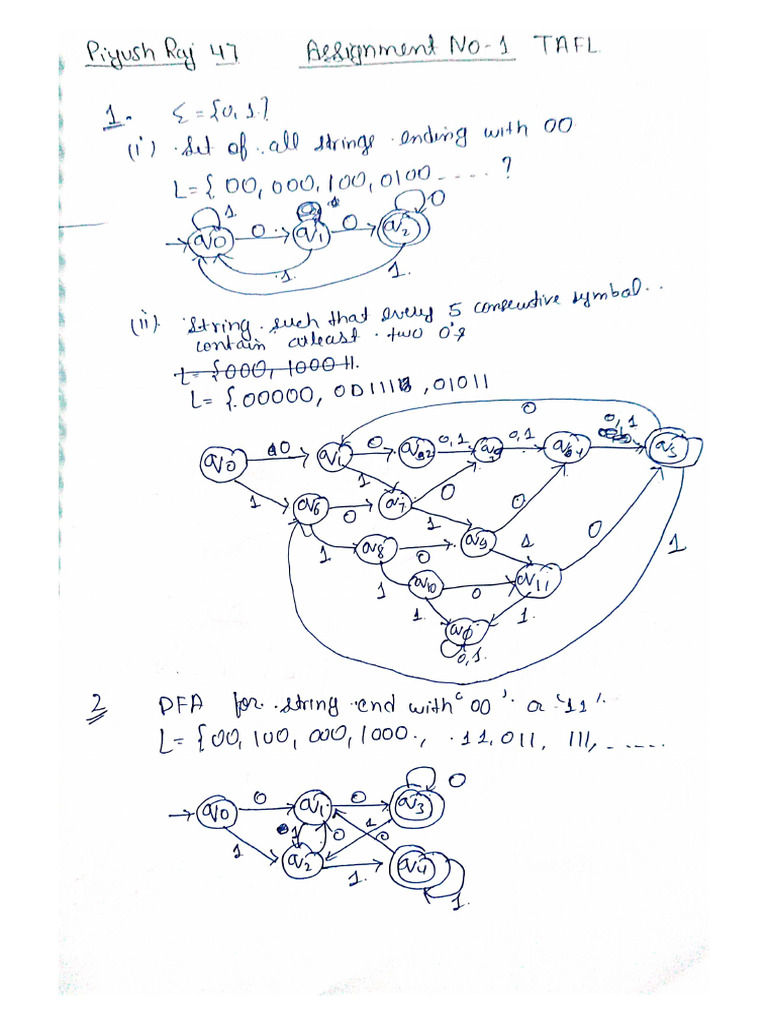 Piyush Raj 47 Assignment No-1 TAFL
1. Σ = {0,1}
(i) Set of all strings ending with 00
L = { 00, 000, 100, 0100 ----- }
1 0
q0 0 q1 0 q2
1 1
(ii) string such that every 5 consecutive symbol
contain atleast two 0's
L = {000, 1000 11
L = { 00000, 001111, 01011
0
q0 0 q1 0 q2 0,1 q3 0,1 q4 0,1 q5
1 1 0
1 q6 0 q7 1 0
1 q8 0 q9 1 0 1
1 q10 0 q11
1 1
qϕ
0,1
2 DFA for string end with '00' or '11'
L = {00, 100, 000, 1000, 11, 011, 111, ------
0
q0 0 q1 0 q3
1 1 0 1 0
q2 1 q4
1